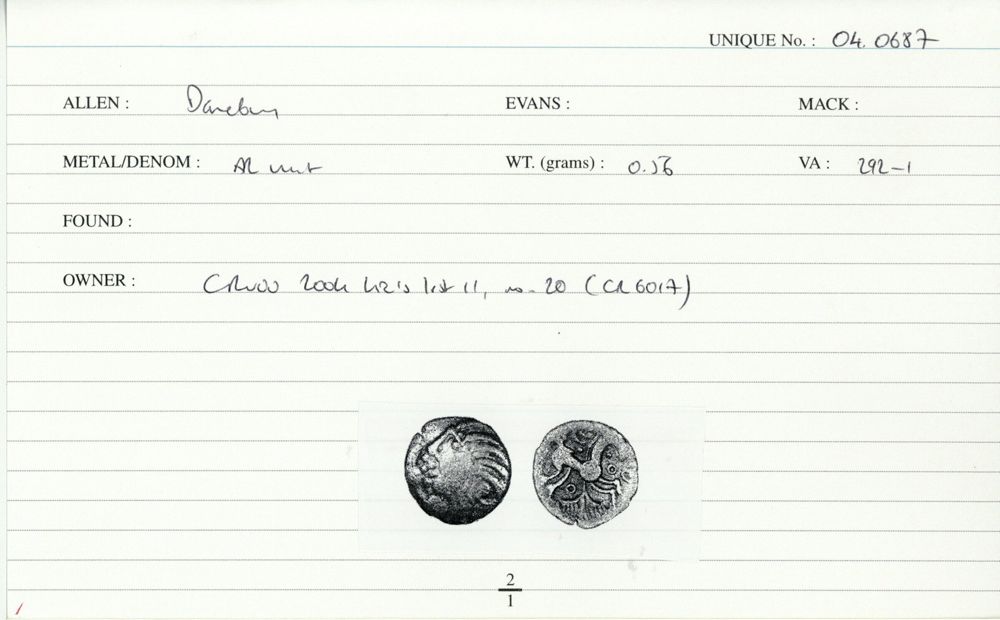 UNIQUE No. : 04. 0687
ALLEN : Danebury EVANS : MACK :
METAL/DENOM : AR unit WT. (grams) : 0.56 VA : 292-1
FOUND :
OWNER : 2004 Liz's list 11, no. 20 (CR 6017)
2
1